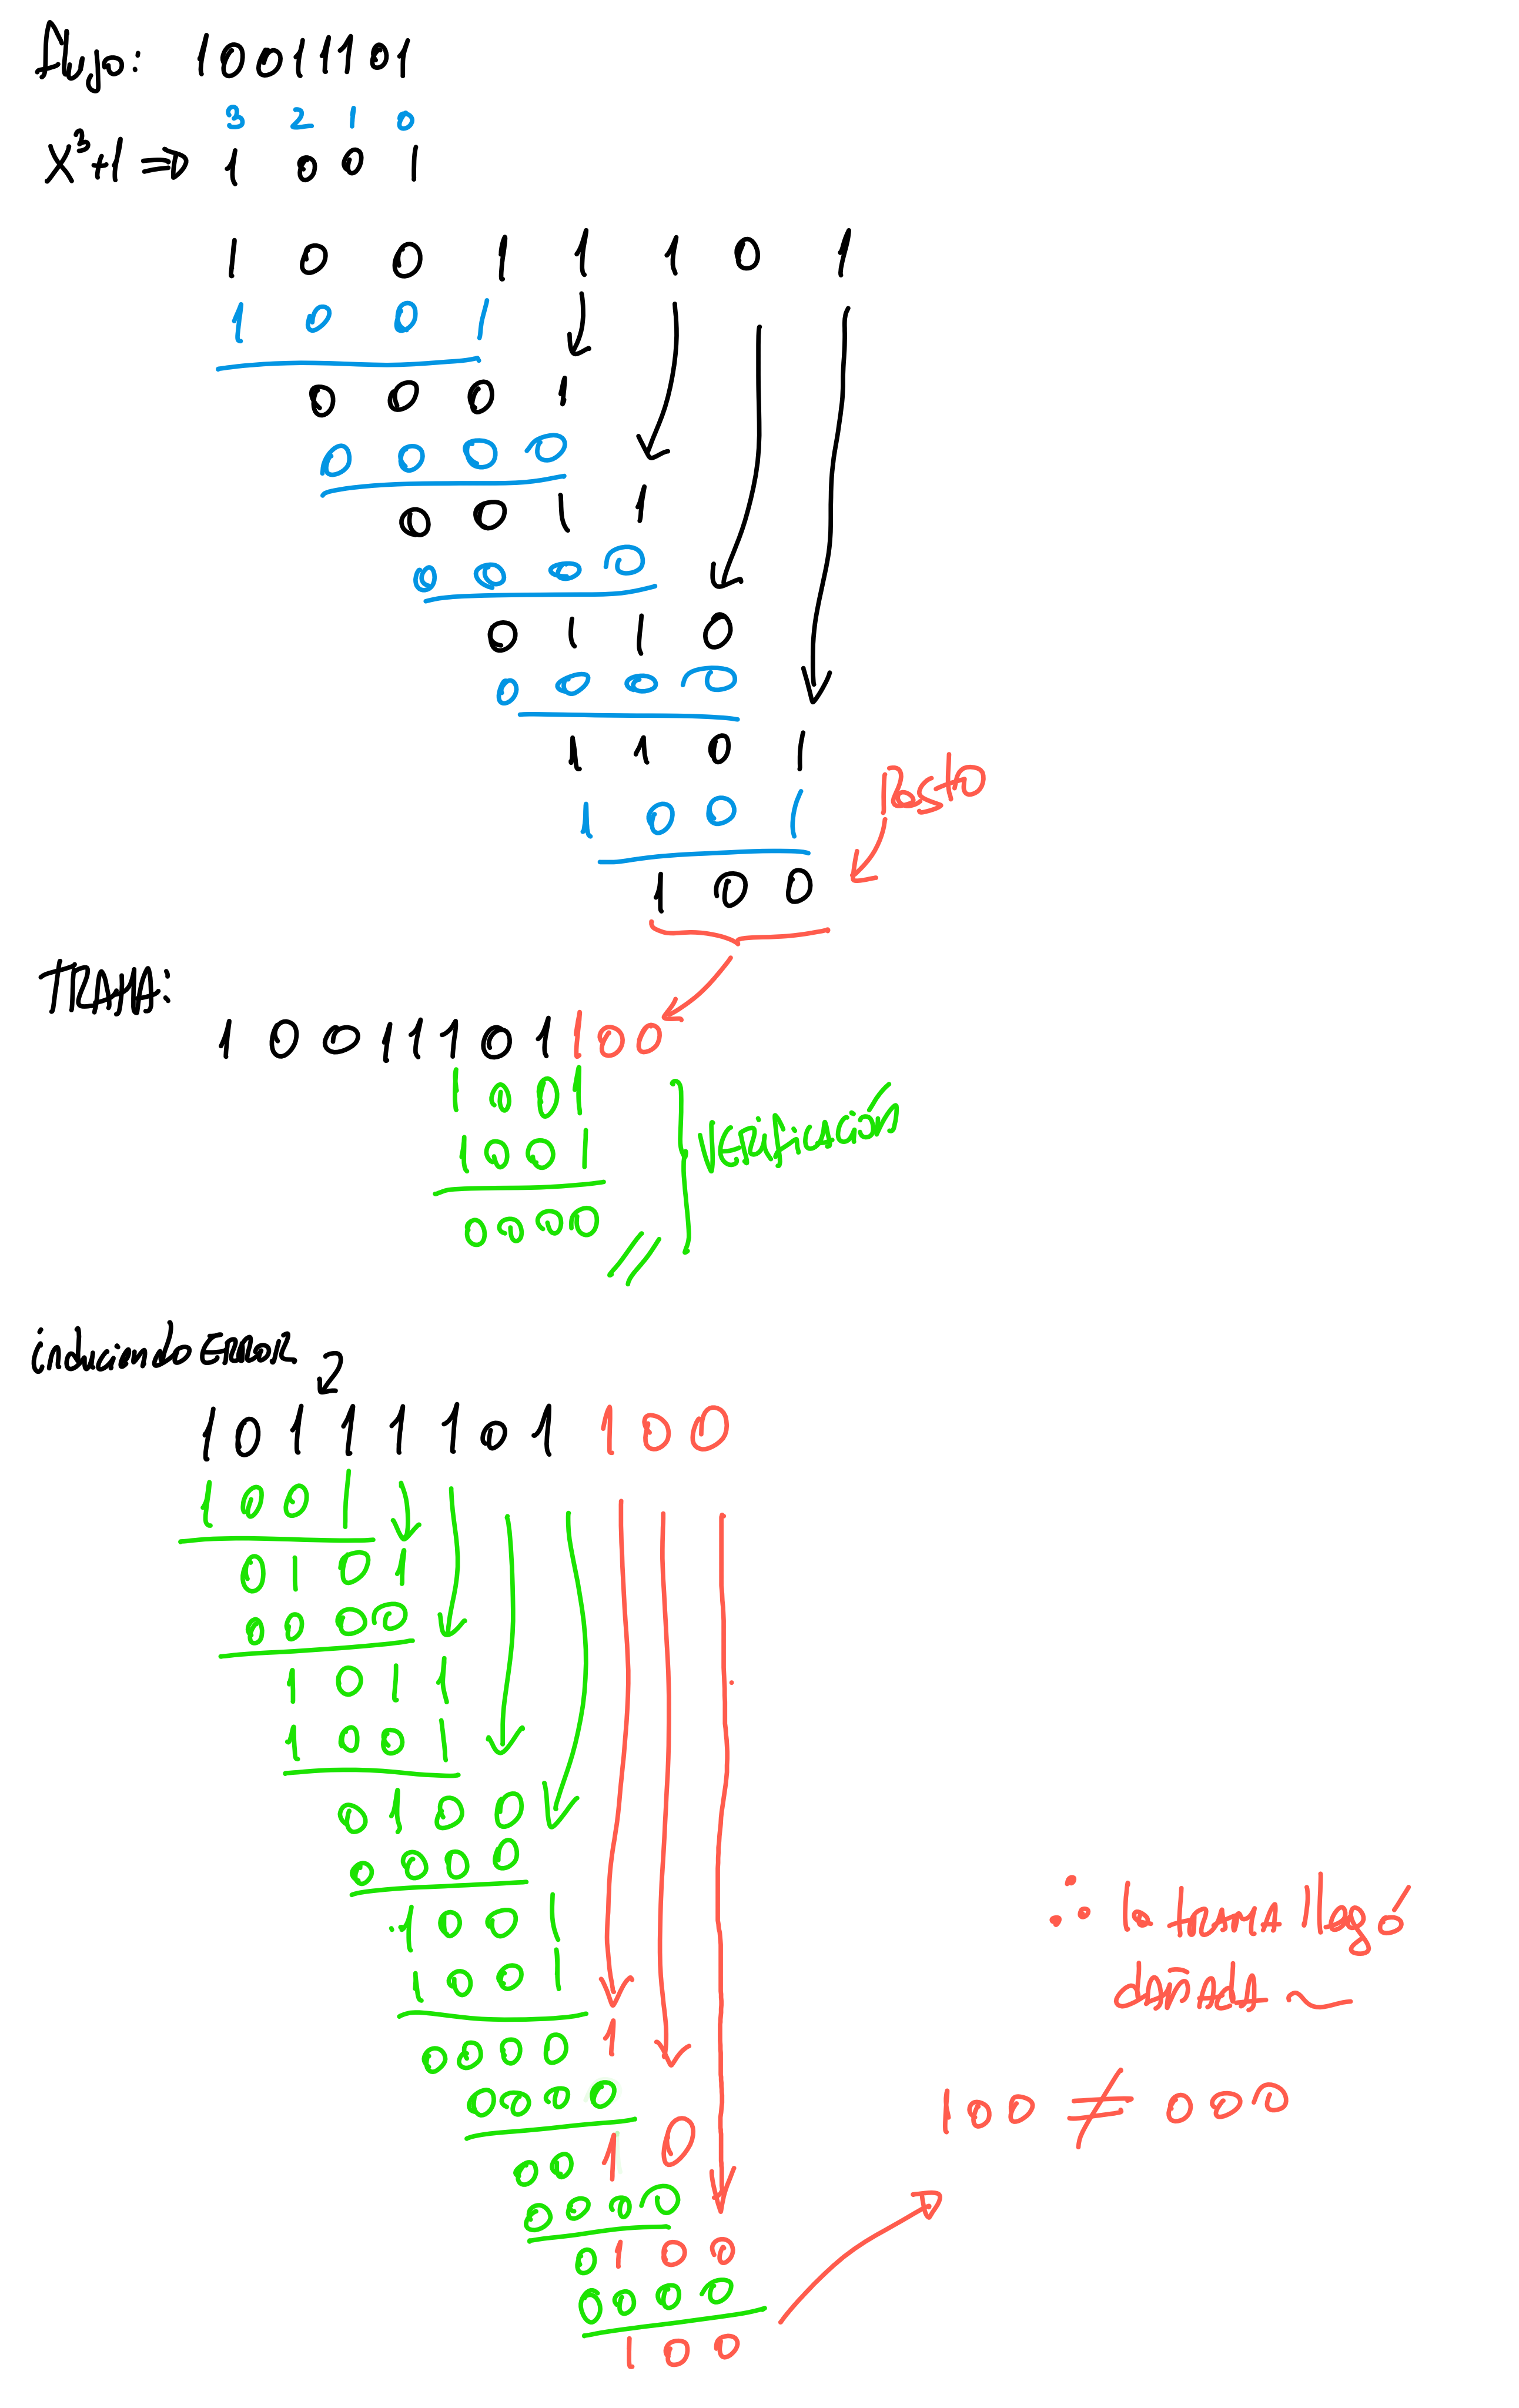 Flujo: 10011101
3 2 1 0
X³+1 ⇒ 1 0 0 1
1 0 0 1 1 1 0 1
1 0 0 1
0 0 0 1
0 0 0 0
0 0 1 1
0 0 0 0
0 1 1 0
0 0 0 0
1 1 0 1
Resto
1 0 0 1
1 0 0
TRAMA:
1 0 0 1 1 1 0 1 1 0 0
1 0 0 1
Verificación
1 0 0 1
0 0 0 0 //
induciendo Error
1 0 1 1 1 1 0 1 1 0 0
1 0 0 1
0 1 0 1
0 0 0 0
1 0 1 1
1 0 0 1
0 1 0 0
0 0 0 0
1 0 0 1
1 0 0 1
0 0 0 0 1
0 0 0 0
0 0 1 0
0 0 0 0
0 1 0 0
0 0 0 0
1 0 0
∴ la trama llegó
dañada ~
100 ≠ 000